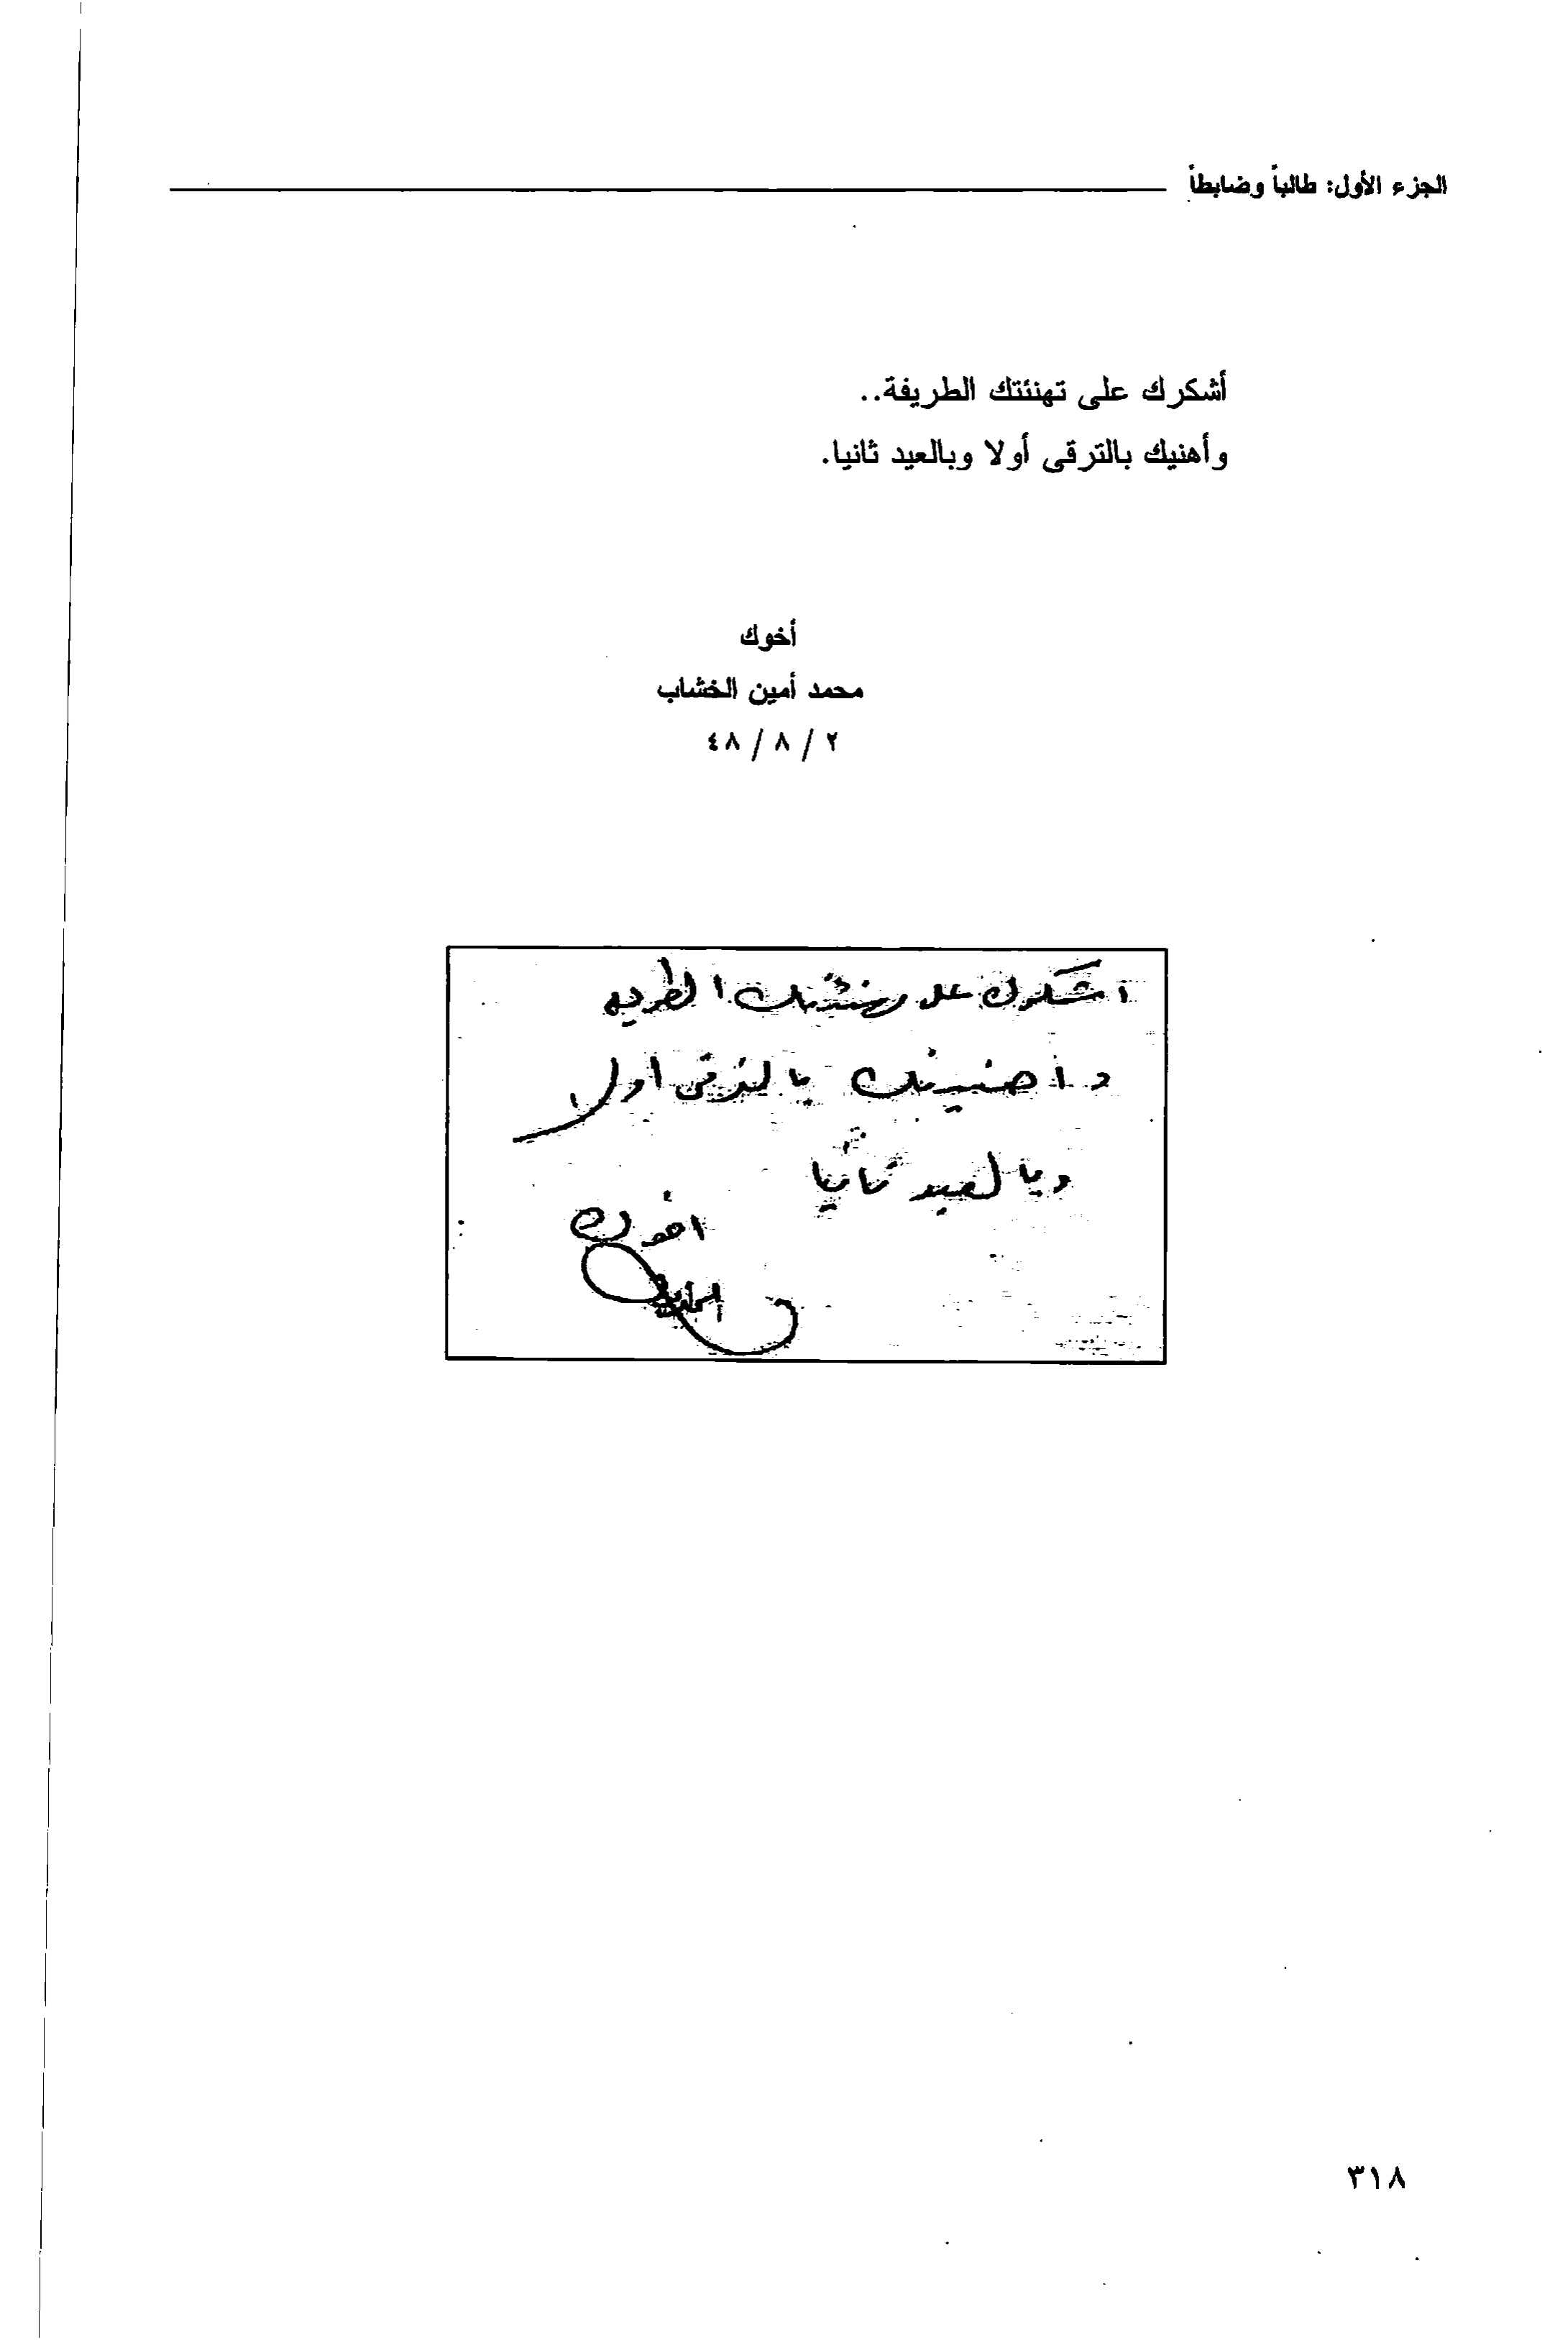 الجزء الأول: طالباً وضابطاً
أشكرك على تهنئتك الطريفة..
وأهنيك بالترقى أولا وبالعيد ثانيا.
أخوك
محمد أمين الخشاب
٢ / ٨ / ٤٨
اشكرك على تهنئتك الطريفه
واهنيك بالترقى اولا
وبالعيد ثانيا
اخوك
٣١٨